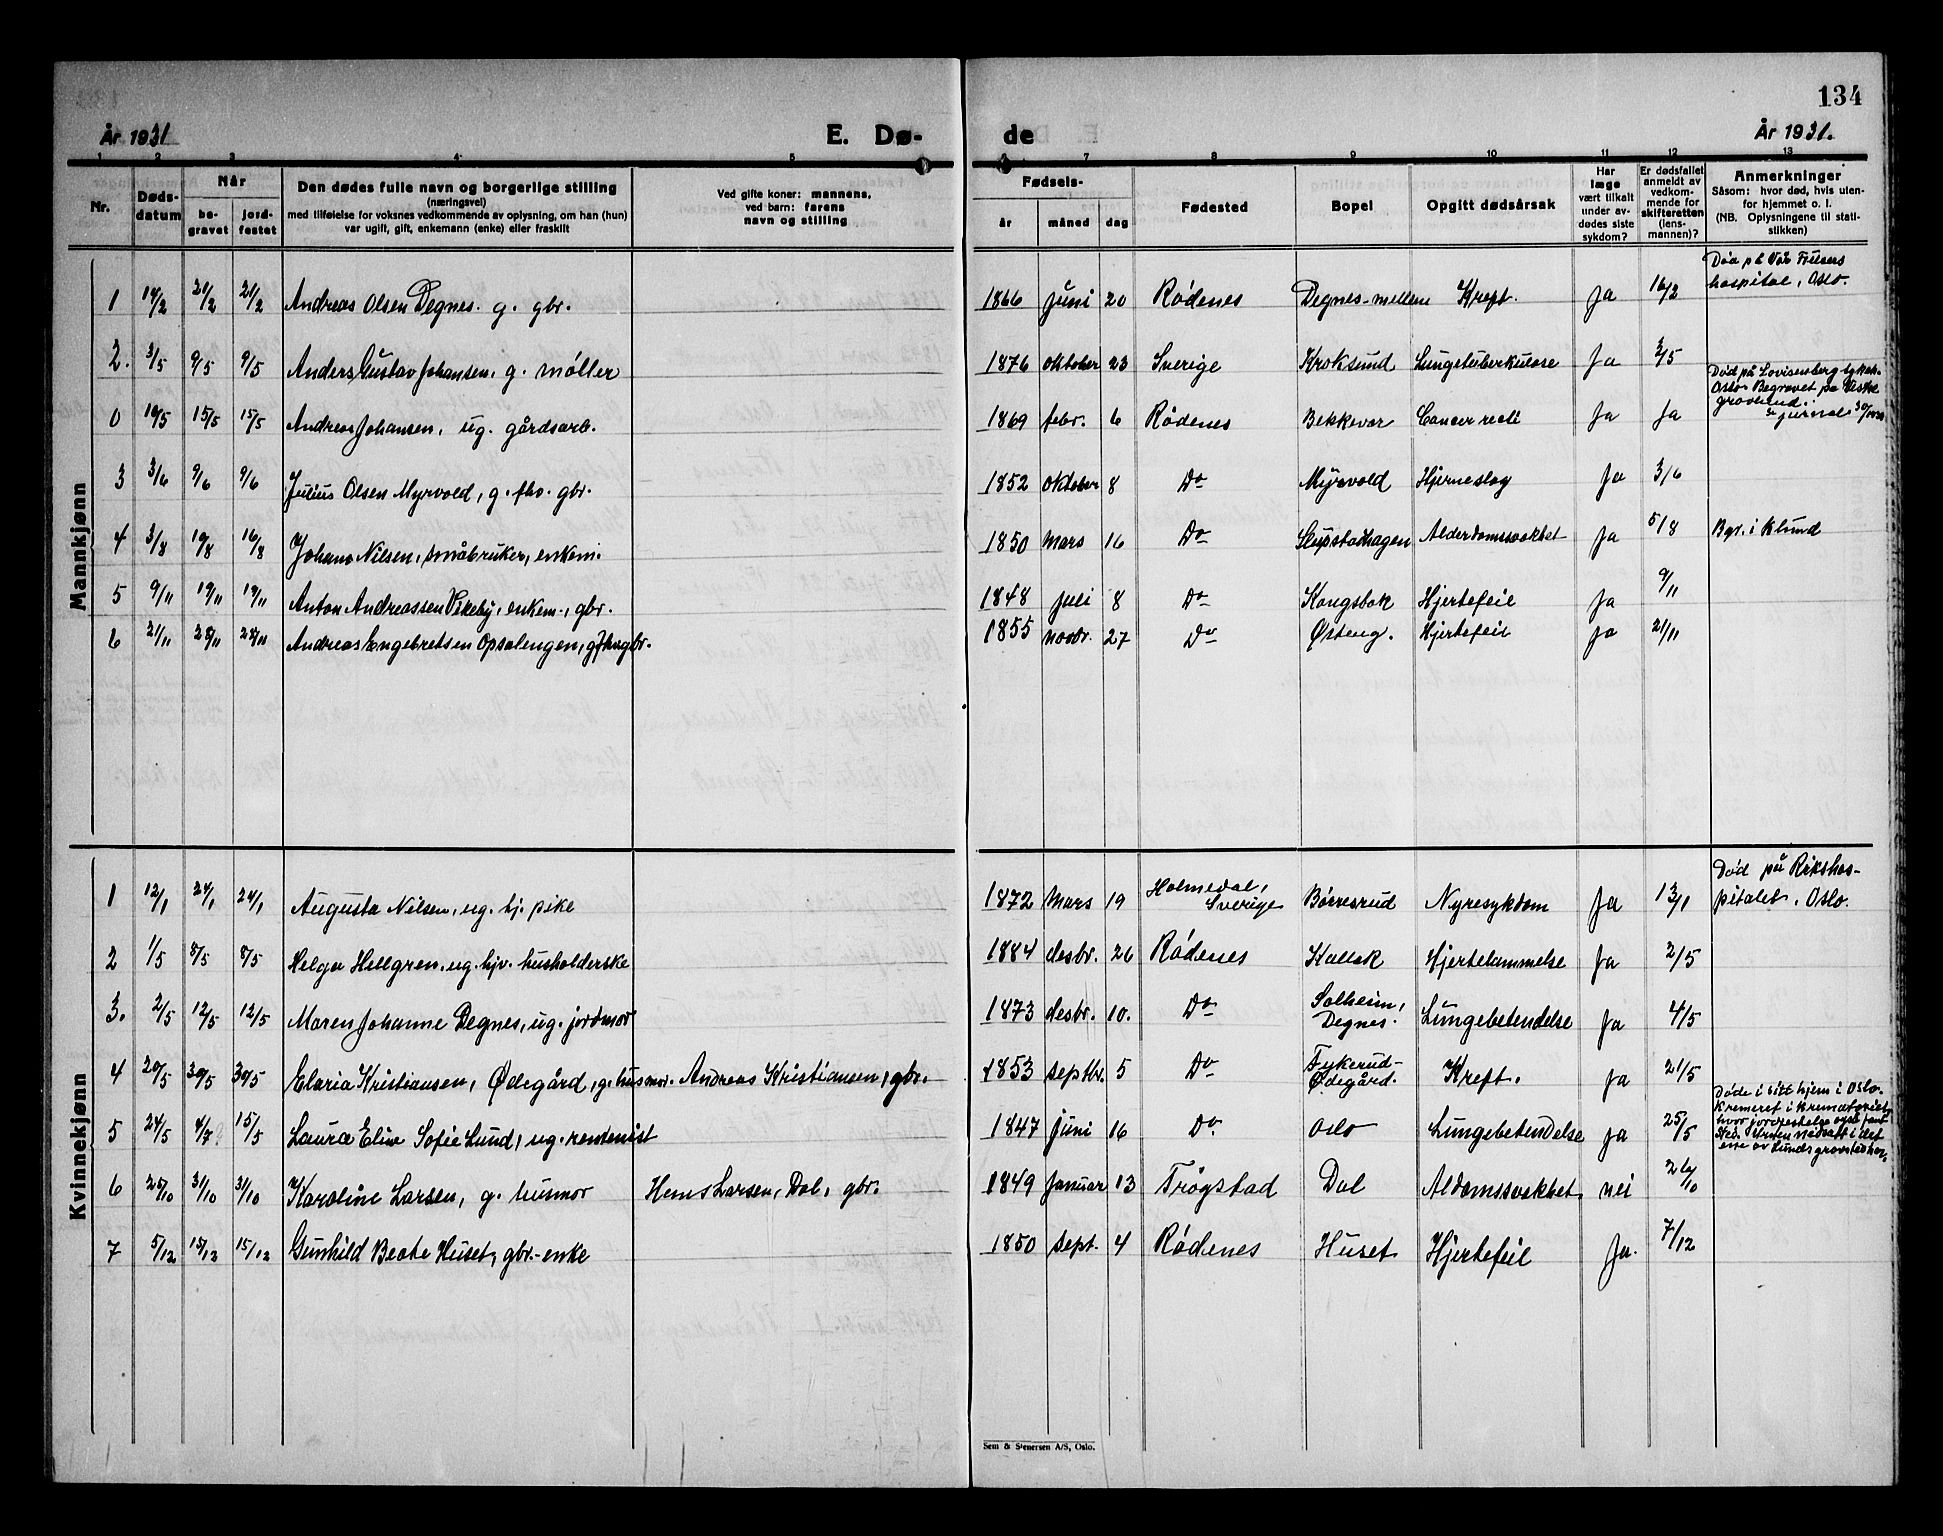 134
År 1931
E. Dø-
de
År 1931.
1 2 3 4 5 6 7 8 9 10 11 12 13
Nr.
Døds-
datum
Når
be-
gravet
jord-
festet
Den dødes fulle navn og borgerlige stilling
(næringsvei)
med tilføielse for voksnes vedkommende av oplysning, om han (hun)
var ugift, gift, enkemann (enke) eller fraskilt
Ved gifte koner: mannens,
ved barn: farens
navn og stilling
Fødsels-
år
måned
dag
Fødested
Bopel
Opgitt dødsårsak
Har
læge
vært tilkalt
under av-
dødes siste
sykdom?
Er dødsfallet
anmeldt av
vedkom-
mende for
skifteretten
(lens-
mannen)?
Anmerkninger
Såsom: hvor død, hvis uten-
for hjemmet o. l.
(NB. Oplysningene til stati-
stikken)
Mannkjønn
1 14/2 21/2 21/2 Andreas Olsen Degnes. g. gbr. 1866 juni 20 Rødenes Degnes-mellem Kreft. Ja 16/2 Død på Vår Frelsers
hospital, Oslo.
2. 3/5 9/5 9/5 Anders Gustav Johansen, g. møller 1876 oktober 23 Sverige Kroksund Lungetuberkulose Ja 3/5
0 10/5 15/5 15/5 Andreas Johansen, ug. gårdsarb. 1869 febr. 6 Rødenes Bekkevar Cancer recti Ja Ja Død på Lovisenberg sykeh.
Oslo Begravet på Vestre
gravlund.
3 3/6 9/6 9/6 Julius Olsen Myrvold, g. fhv. gbr. 1852 oktober 8 Do Myrvold Hjerneslag Ja 3/6
4 3/8 10/8 10/8 Johans Nilsen, småbruker, enkem. 1850 mars 16 Do Slupstadhagen Alderdomssvakhet Ja 5/8 Bgr. i Klund
5 9/11 19/11 19/11 Anton Andreassen Vikeby, enkem., gbr. 1848 juli 8 Do Kongsbok Hjertefeil Ja 9/11
6 21/11 28/11 28/11 Andreas Engebretsen Opsalengen, g. fhv gbr. 1855 novbr. 27 Do Østeng. Hjertefeil Ja 21/11
Kvinnekjønn
1 12/1 24/1 24/1 Augusta Nilsen, ug. tj. pike 1872 mars 19 Holmedal,
Sverige Børresrud Nyresykdom Ja 13/1 Død på Rikshos-
pitalet, Oslo.
2 1/5 8/5 8/5 Helga Hellgren, ug. hjv. husholderske 1884 desbr. 26 Rødenes Kallak Hjertelammelse Ja 2/5
3. 2/5 12/5 12/5 Maren Johanne Degnes, ug. jordmor 1873 desbr. 10. Do Solheim,
Degnes. Lungebetendelse Ja 4/5
4 20/5 30/5 30/5 Elaria Kristiansen, Ødegård, g. husmor. Andreas Kristiansen, gbr. 1853 septbr. 5 Do Fykerud-
Ødegård. Kreft. ja 21/5
5 24/5 4/7 15/5 Laura Eline Sofie Lund, ug. rentenist 1847 juni 16 Do Oslo Lungebetendelse ja 25/5 Døde i sitt hjem i Oslo.
Kremeret i krematoriet
hvor jordfestelse også fant
sted. Urnen nedsatt i det
ene av Lunds gravsteder
6 25/10 31/10 31/10 Karoline Larsen, g. husmor Hans Larsen, Dal, gbr. 1849 januar 13 Trøgstad Dal Aldomssvakhet nei 26/10
7 5/12 15/12 15/12 Gunhild Beate Huset, gbr.-enke 1850 sept. 4 Rødenes Huset Hjertefeil Ja. 7/12
Sem & Stenersen A/S, Oslo.